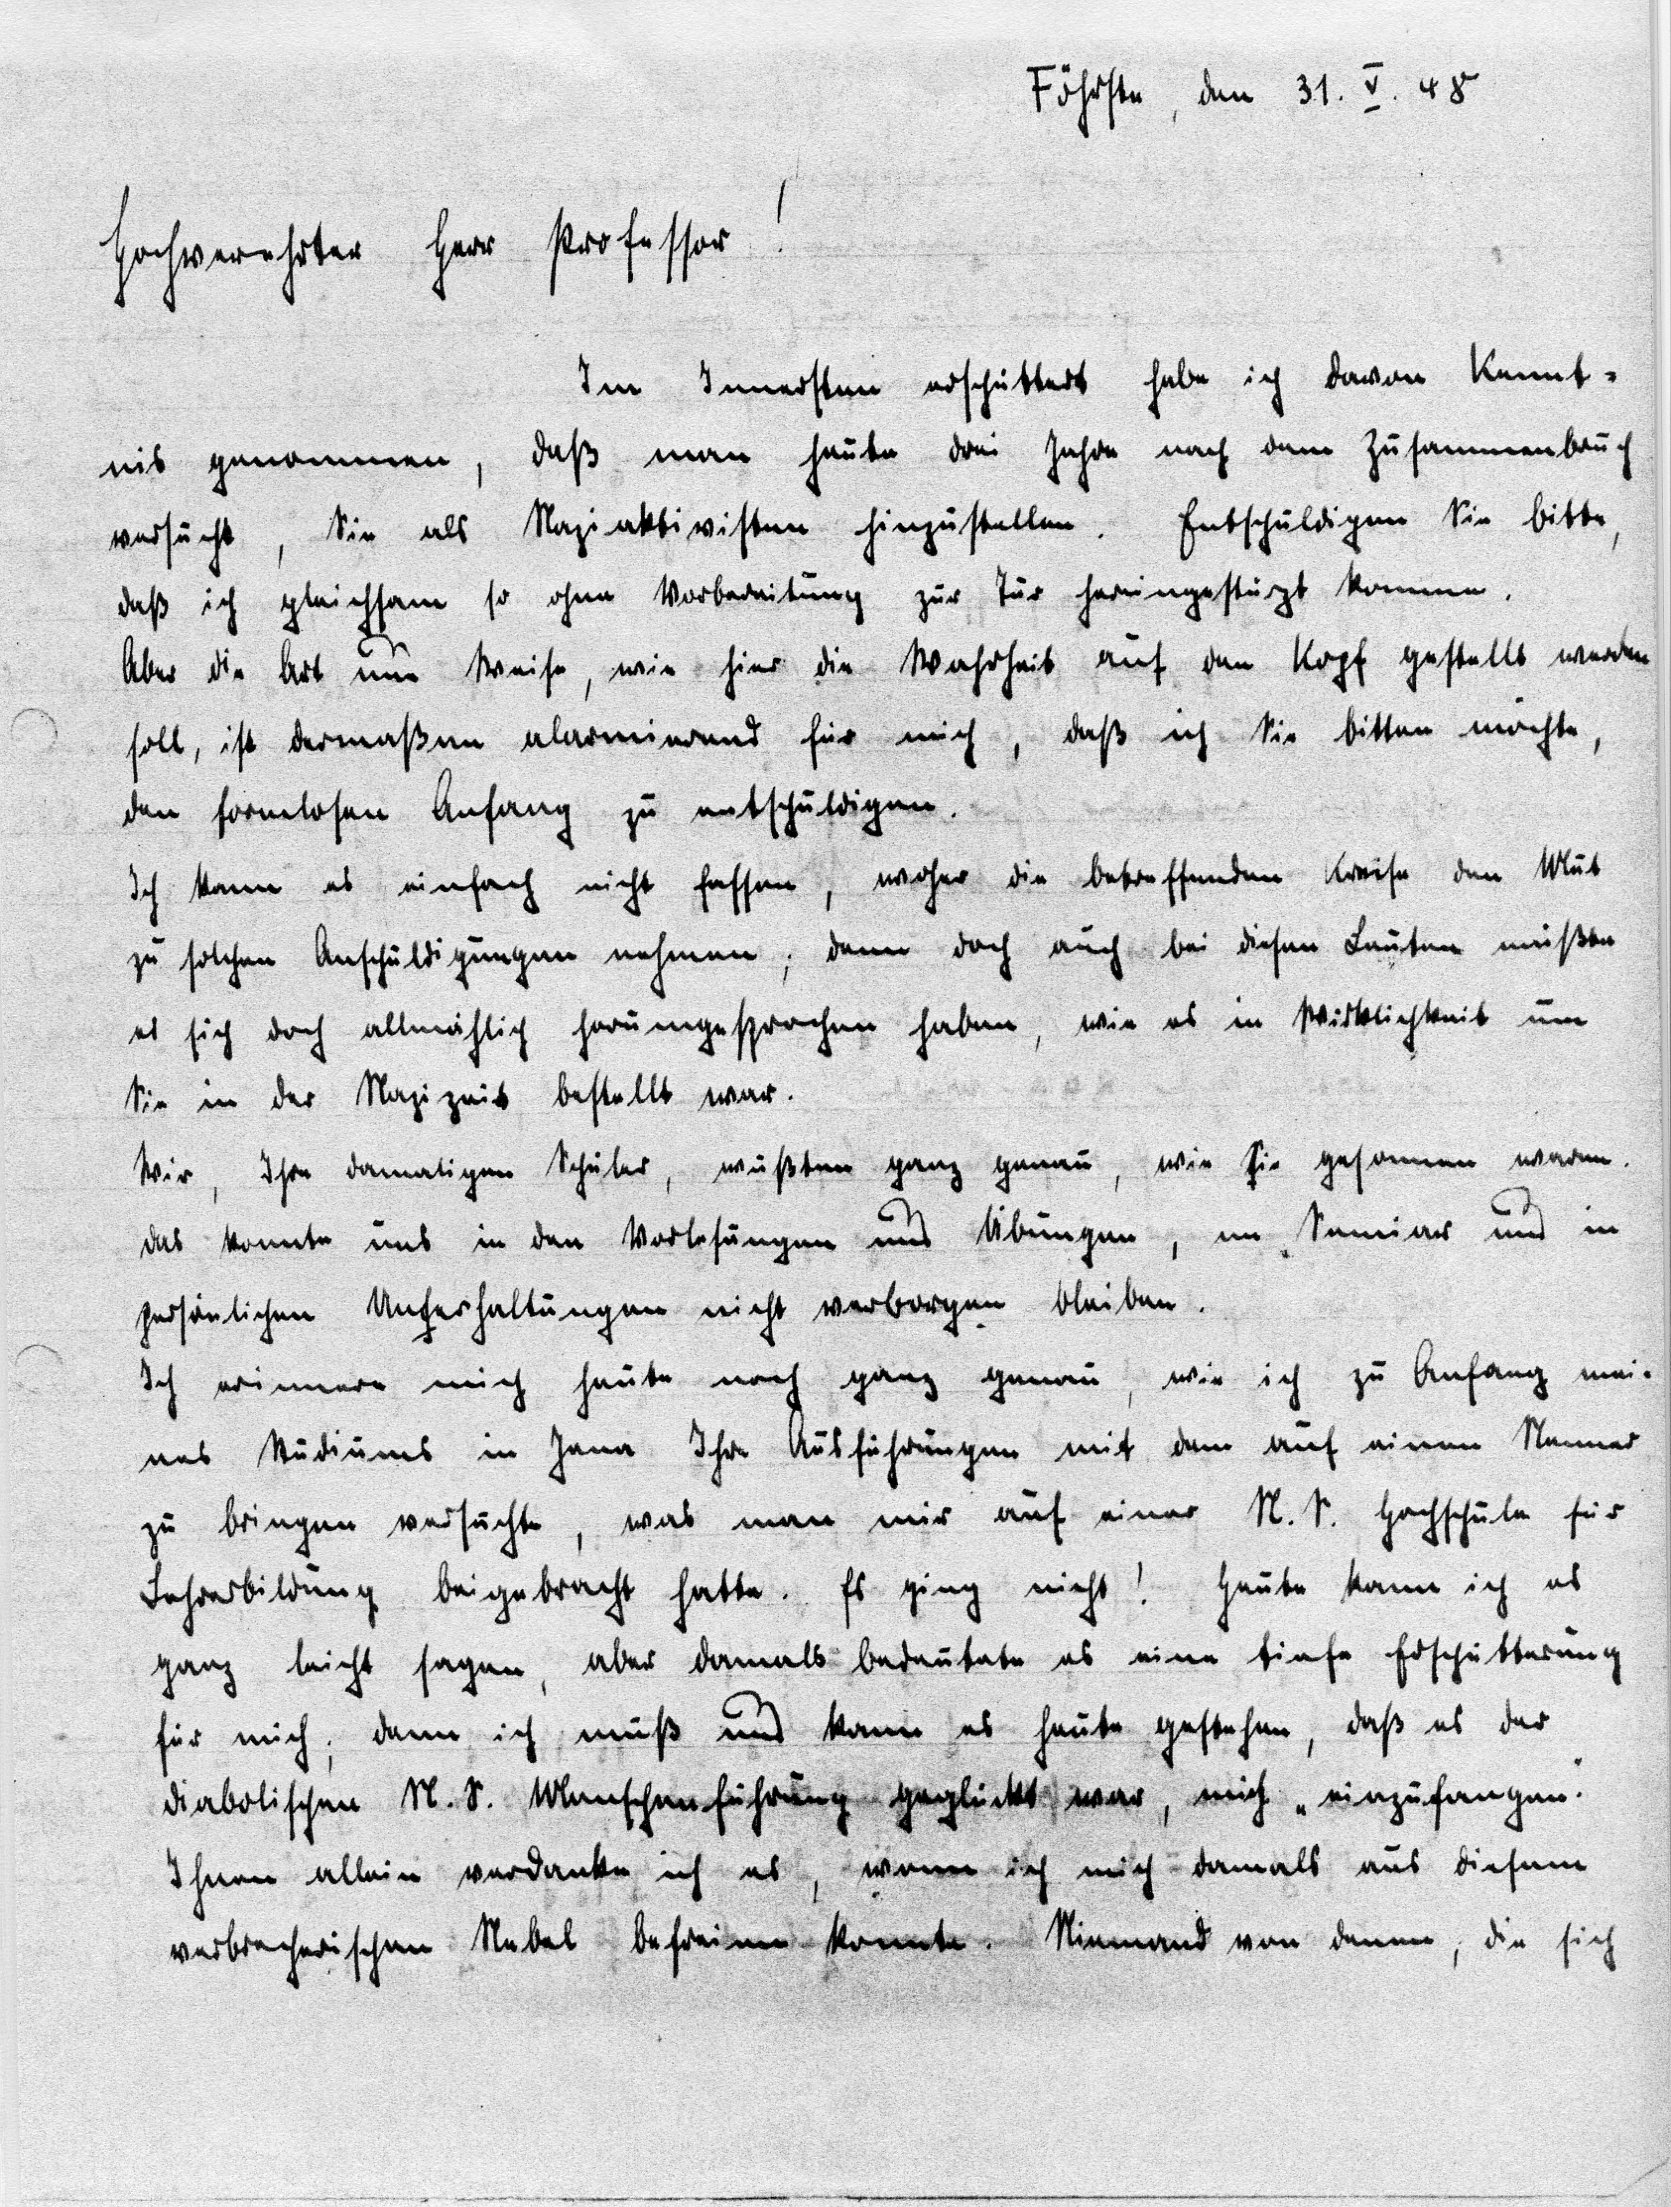 Föhrste, den 31. V. 48
Hochverehrter Herr Professor!
Im Innersten erschüttert habe ich davon Kennt-
nis genommen, daß man heute drei Jahre nach dem Zusammenbruch
versucht, Sie als Naziaktivisten hinzustellen. Entschuldigen Sie bitte,
daß ich gleichsam so ohne Vorbereitung zur Tür hereingestürzt komme.
Aber die Art und Weise, wie hier die Wahrheit auf den Kopf gestellt werden
soll, ist dermaßen alarmierend für mich, daß ich Sie bitten möchte,
den formlosen Anfang zu entschuldigen.
Ich kann es einfach nicht fassen, woher die betreffenden Kreise den Mut
zu solchen Anschuldigungen nehmen; denn doch auch bei diesen Leuten müßte
es sich doch allmählich herumgesprochen haben, wie es in Wirklichkeit um
Sie in der Nazizeit bestellt war.
Wir, Ihre damaligen Schüler, wußten ganz genau, wie Sie gesonnen waren.
das konnte uns in den Vorlesungen und Übungen, im Seminar und in
persönlichen Unterhaltungen nicht verborgen bleiben.
Ich erinnere mich heute noch ganz genau, wie ich zu Anfang mei-
nes Studiums in Jena Ihre Ausführungen mit dem auf einen Nenner
zu bringen versuchte, was man mir auf einer N.S. Hochschule für
Lehrerbildung beigebracht hatte. Es ging nicht! Heute kann ich es
ganz leicht sagen, aber damals bedeutete es eine tiefe Erschütterung
für mich; denn ich muß und kann es heute gestehen, daß es der
diabolischen N.S. Menschenführung geglückt war, mich „einzufangen".
Ihnen allein verdanke ich es, wenn ich mich damals aus diesem
verbrecherischen Nebel befreien konnte. Niemand von denen, die sich